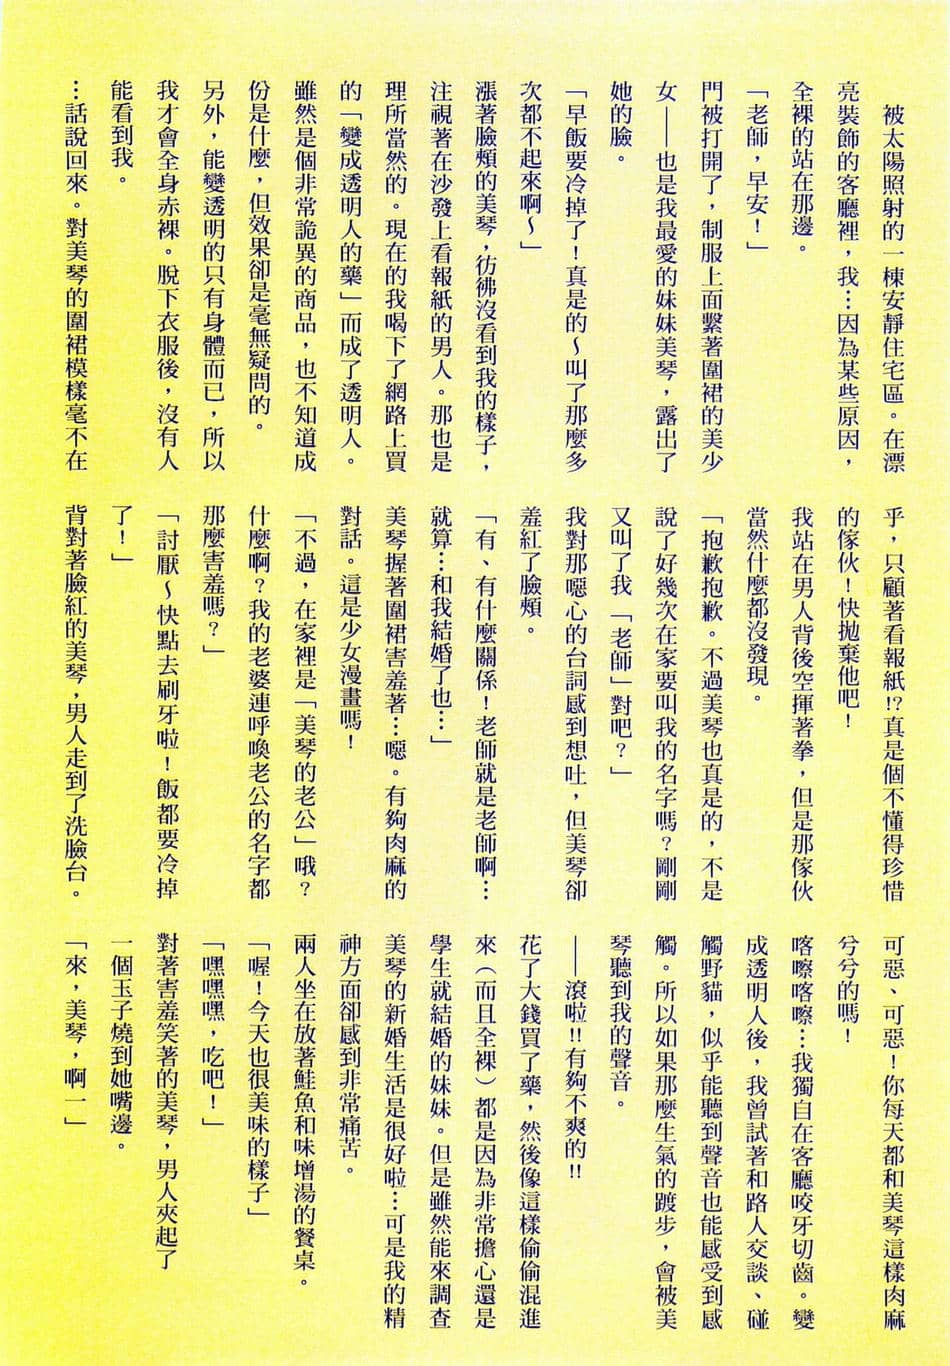 被太陽照射的一棟安靜住宅區。在漂
亮裝飾的客廳裡，我…因為某些原因，
全裸的站在那邊。
「老師，早安！」
門被打開了，制服上面繫著圍裙的美少
女──也是我最愛的妹妹美琴，露出了
她的臉。
「早飯要冷掉了！真是的～叫了那麼多
次都不起來啊～」
漲著臉頰的美琴，彷彿沒看到我的樣子，
注視著在沙發上看報紙的男人。那也是
理所當然的。現在的我喝下了網路上買
的「變成透明人的藥」而成了透明人。
雖然是個非常詭異的商品，也不知道成
份是什麼，但效果卻是毫無疑問的。
另外，能變透明的只有身體而已，所以
我才會全身赤裸。脫下衣服後，沒有人
能看到我。
…話說回來。對美琴的圍裙模樣毫不在
乎，只顧著看報紙!?真是個不懂得珍惜
的傢伙！快拋棄他吧！
我站在男人背後空揮著拳，但是那傢伙
當然什麼都沒發現。
「抱歉抱歉。不過美琴也真是的，不是
說了好幾次在家要叫我的名字嗎？剛剛
又叫了我「老師」對吧？」
我對那噁心的台詞感到想吐，但美琴卻
羞紅了臉頰。
「有、有什麼關係！老師就是老師啊…
就算…和我結婚了也…」
美琴握著圍裙害羞著…噁。有夠肉麻的
對話。這是少女漫畫嗎！
「不過，在家裡是「美琴的老公」哦？
什麼啊？我的老婆連呼喚老公的名字都
那麼害羞嗎？」
「討厭～快點去刷牙啦！飯都要冷掉
了！」
背對著臉紅的美琴，男人走到了洗臉台。
可惡、可惡！你每天都和美琴這樣肉麻
兮兮的嗎！
喀嚓喀嚓…我獨自在客廳咬牙切齒。變
成透明人後，我曾試著和路人交談、碰
觸野貓，似乎能聽到聲音也能感受到感
觸。所以如果那麼生氣的踱步，會被美
琴聽到我的聲音。
──滾啦!!有夠不爽的!!
花了大錢買了藥，然後像這樣偷偷混進
來（而且全裸）都是因為非常擔心還是
學生就結婚的妹妹。但是雖然能來調查
美琴的新婚生活是很好啦…可是我的精
神方面卻感到非常痛苦。
兩人坐在放著鮭魚和味增湯的餐桌。
「喔！今天也很美味的樣子」
「嘿嘿嘿，吃吧！」
對著害羞笑著的美琴，男人夾起了
一個玉子燒到她嘴邊。
「來，美琴，啊一」